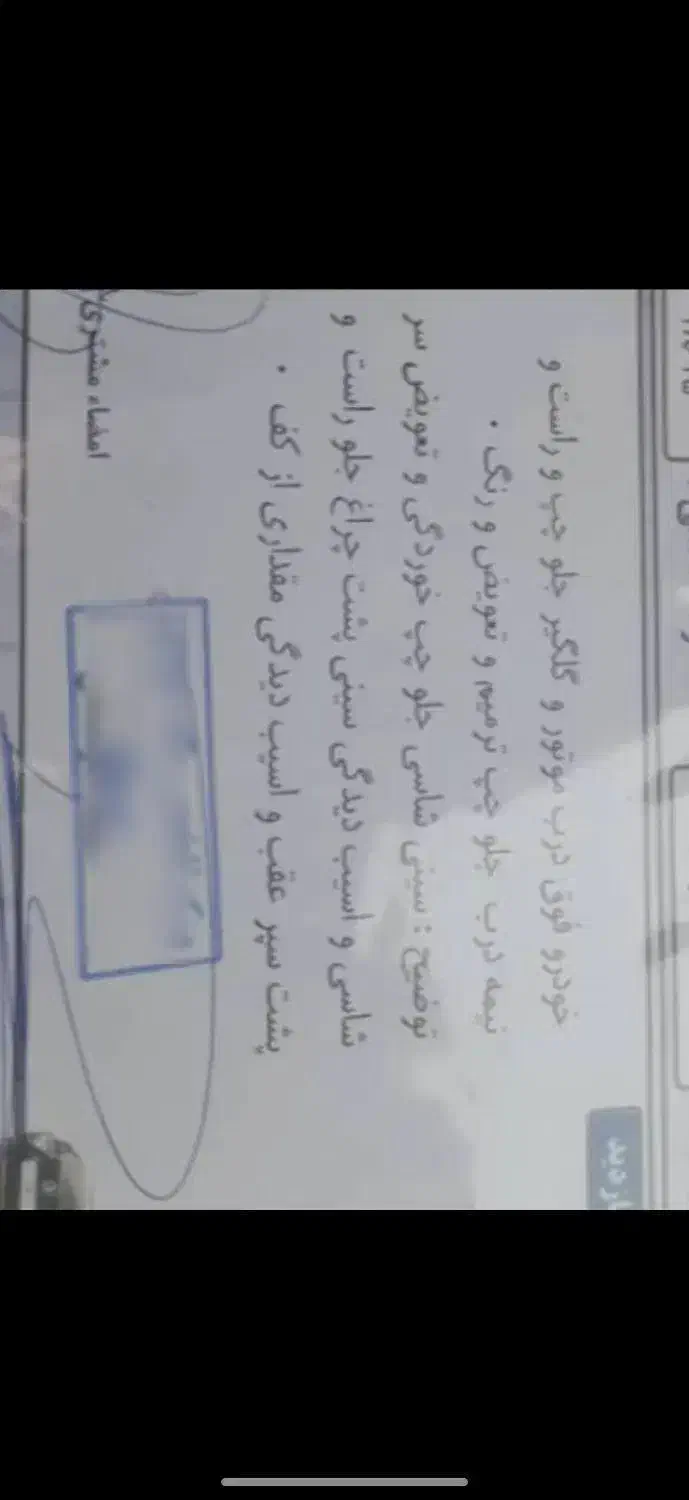 خودرو فوق درب موتور و گلگیر جلو چپ و راست و
نیمه درب جلو چپ ترمیم و تعویض و رنگ .
توضیح : سینی شاسی جلو چپ خوردگی و تعویض سر
شاسی و اسیب دیدگی سینی پشت چراغ جلو راست و
پشت سپر عقب و اسیب دیدگی مقداری از کف .
امضاء مشتری